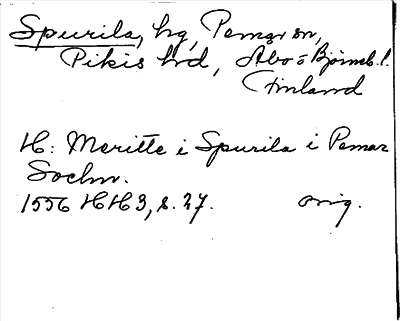 Spurila, hg, Pemar sn,
Pikis hd, Åbo o Björneb. l.
Finland
H: Meritte i Spurila i Pemar
Sochn.
1556 HH3, s. 27. orig.